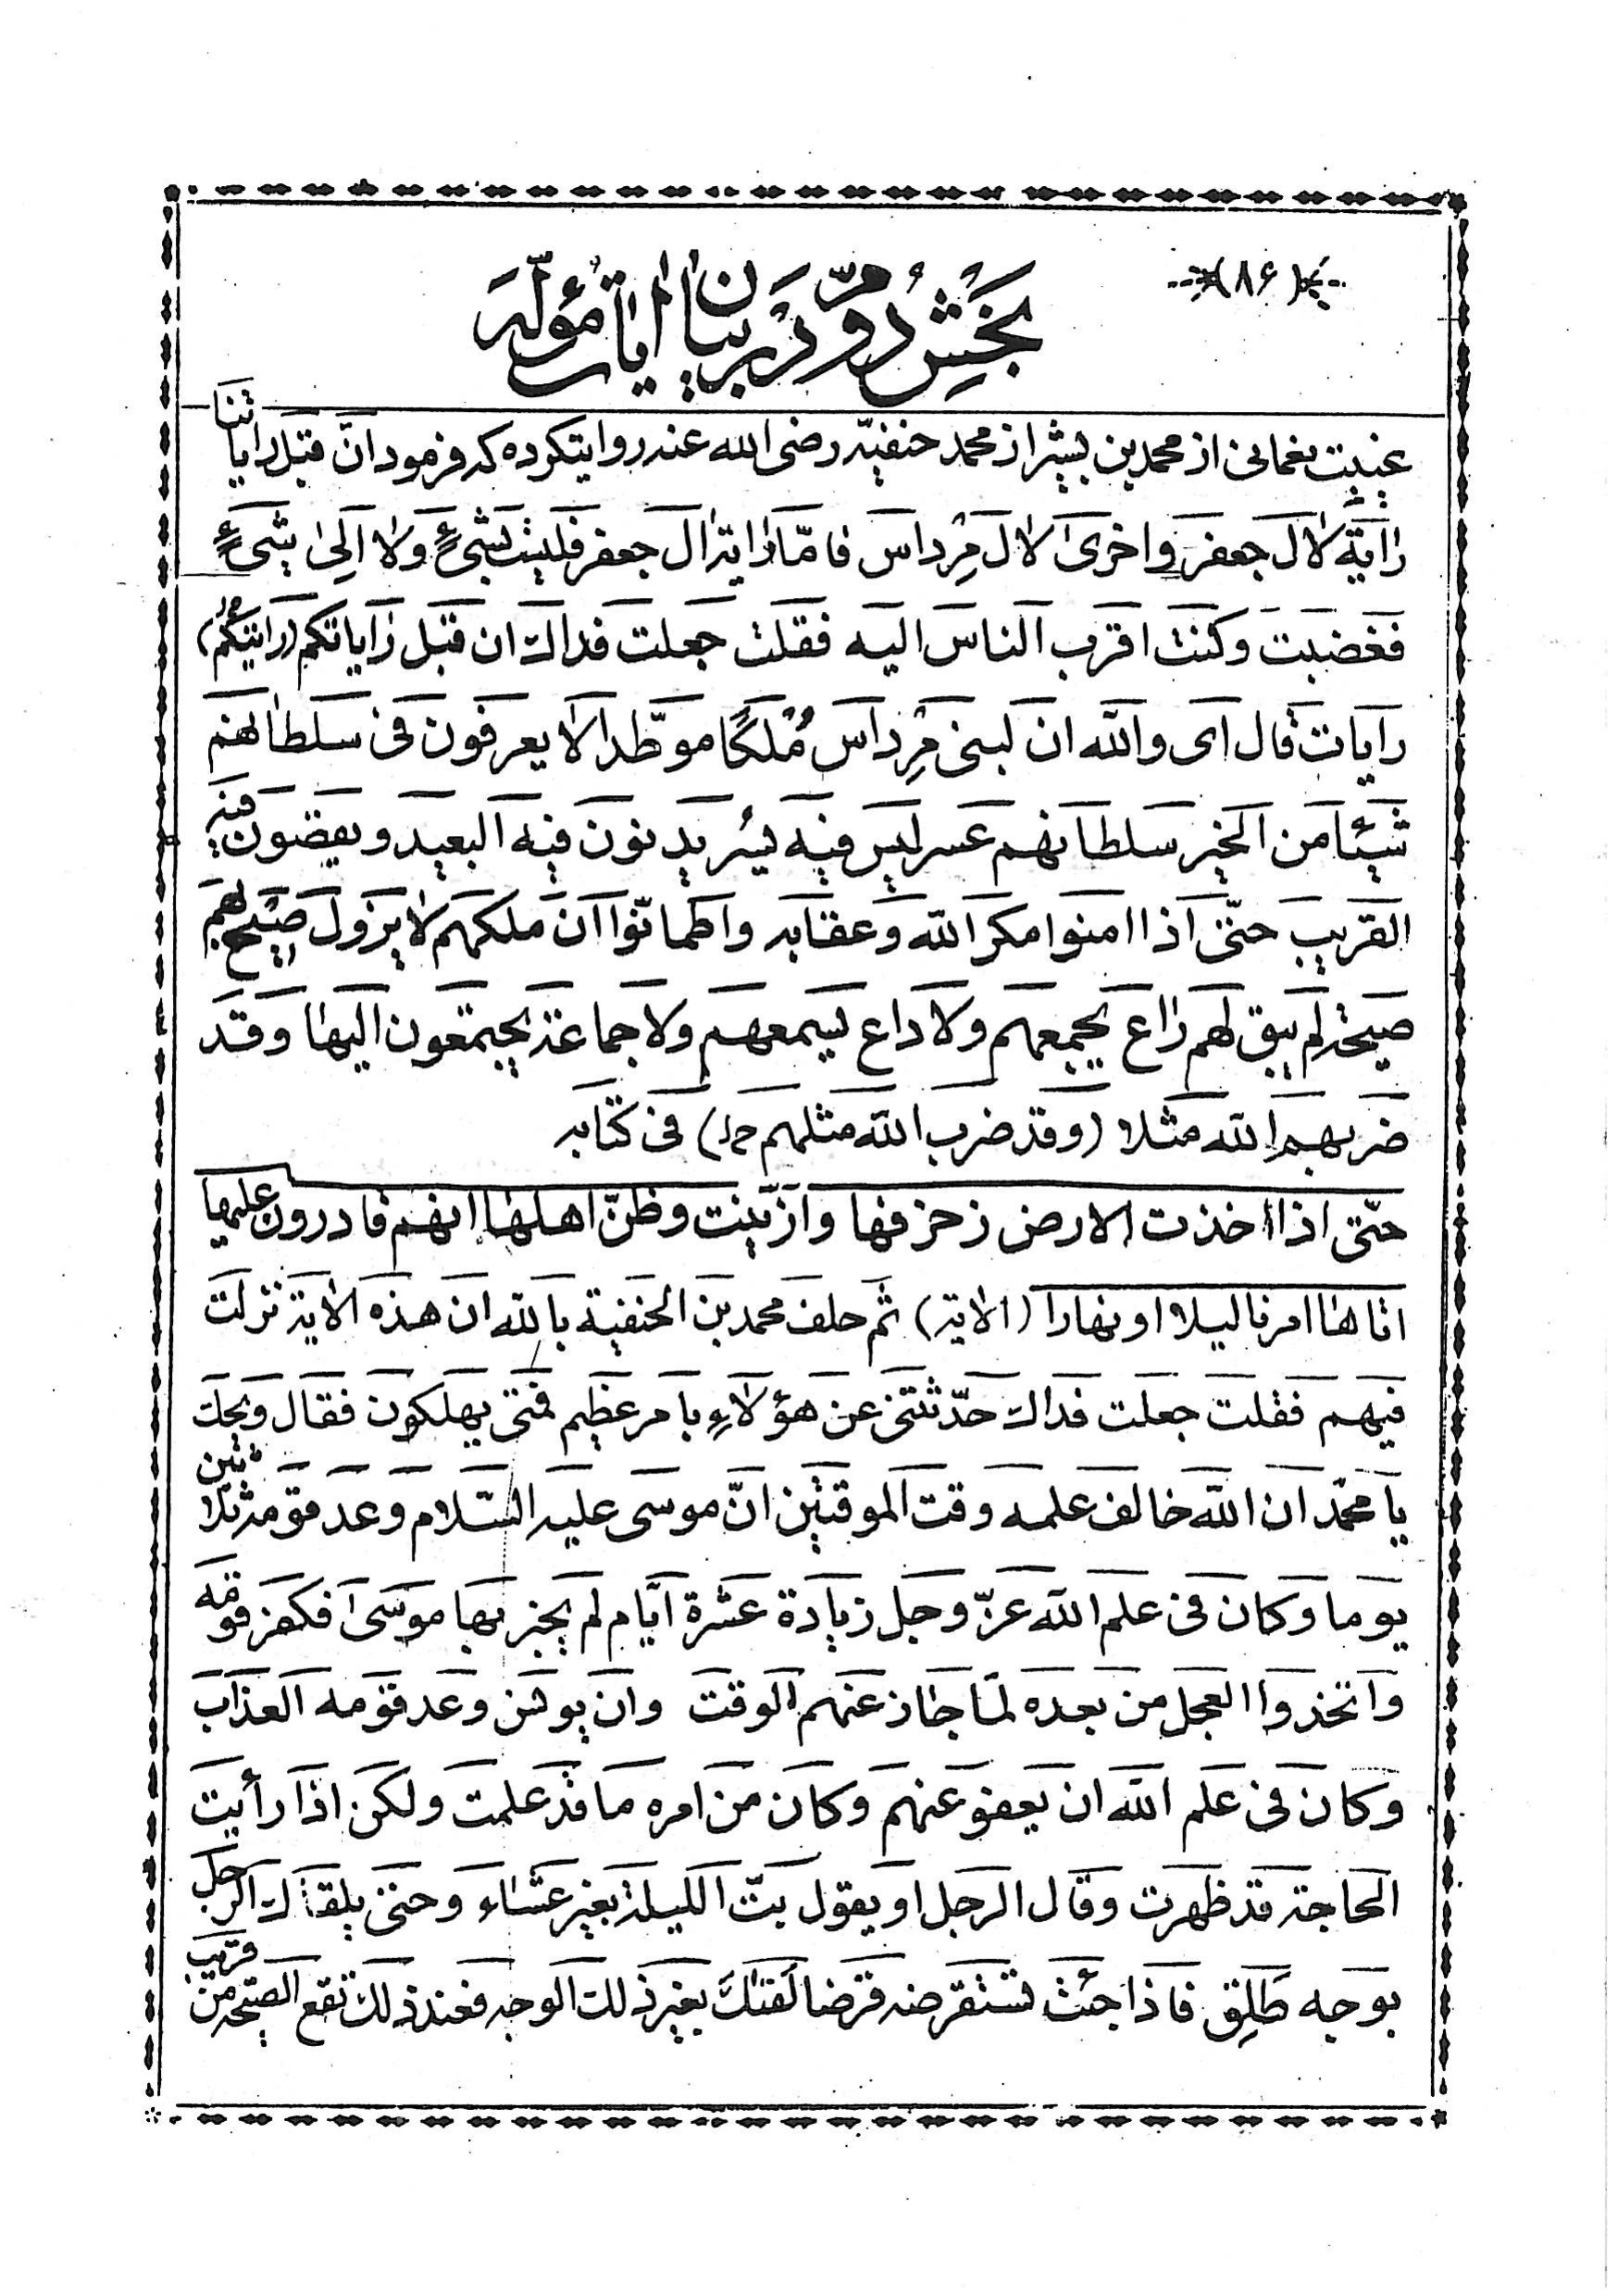 (۸۶)
بخش دوم در بیان ایات مؤلّه
غیبت نعمانی از محمد بن بشر از محمد حنفیه رضی الله عنه روایتکرده که فرمود انّ قبل رایاتنا
رایة لال جعفر واخری لال مرداس فامّا رایة ال جعفر فلیت بشیء ولا الی شیء
فغضبت وکنت اقرب الناس الیه فقلت جعلت فداک ان قبل رایاتکم (رایتکم خ‌ل)
رایات قال ای والله ان لبنی مرداس مُلکًا موطّدا لا یعرفون فی سلطانهم
شیئا من الخیر سلطانهم عسر لیس فیه یسر یدنون فیه البعید ویقصون فیه
القریب حتّی اذا امنوا مکر الله وعقابه واطمانّوا ان ملکهم لا یزول صیح لهم
صیحة لم یبق لهم راع یجمعهم ولا داع یسمعهم ولا جماعة یجتمعون الیها وقد
ضربهم الله مثلا (وقد ضرب الله مثلهم خ‌ل) فی کتابه
حتّی اذا اخذت الارض زخرفها وازّیّنت وظنّ اهلها انهم قادرون علیها
اتاها امرنا لیلا او نهارا (الایة) ثم حلف محمد بن الحنفیة بالله ان هذه الایة نزلت
فیهم فقلت جعلت فداک حدّثتنی عن هؤلاء بامر عظیم فمتی یهلکون فقال ویحک
یا محمّد ان الله خالف علمه وقت الموقتین انّ موسی علیه السّلام وعد قومه ثلاثین
یوما وکان فی علم الله عزّ وجل زیادة عشرة ایّام لم یخبر بها موسی فکفر قومه
واتخذوا العجل من بعده لمّا جاز عنهم الوقت وان یونس وعد قومه العذاب
وکان فی علم الله ان یعفو عنهم وکان من امره ما قد علمت ولکن اذا رأیت
الحاجة قد ظهرت وقال الرجل او یقول بتّ اللیلة بغیر عشاء وحتی یلقاک الرجل
بوجه طلِق فاذا جئت تستقرضه قرضا لقتک بغیر ذلک الوجه فعند ذلک تقع الصیحة من قریب